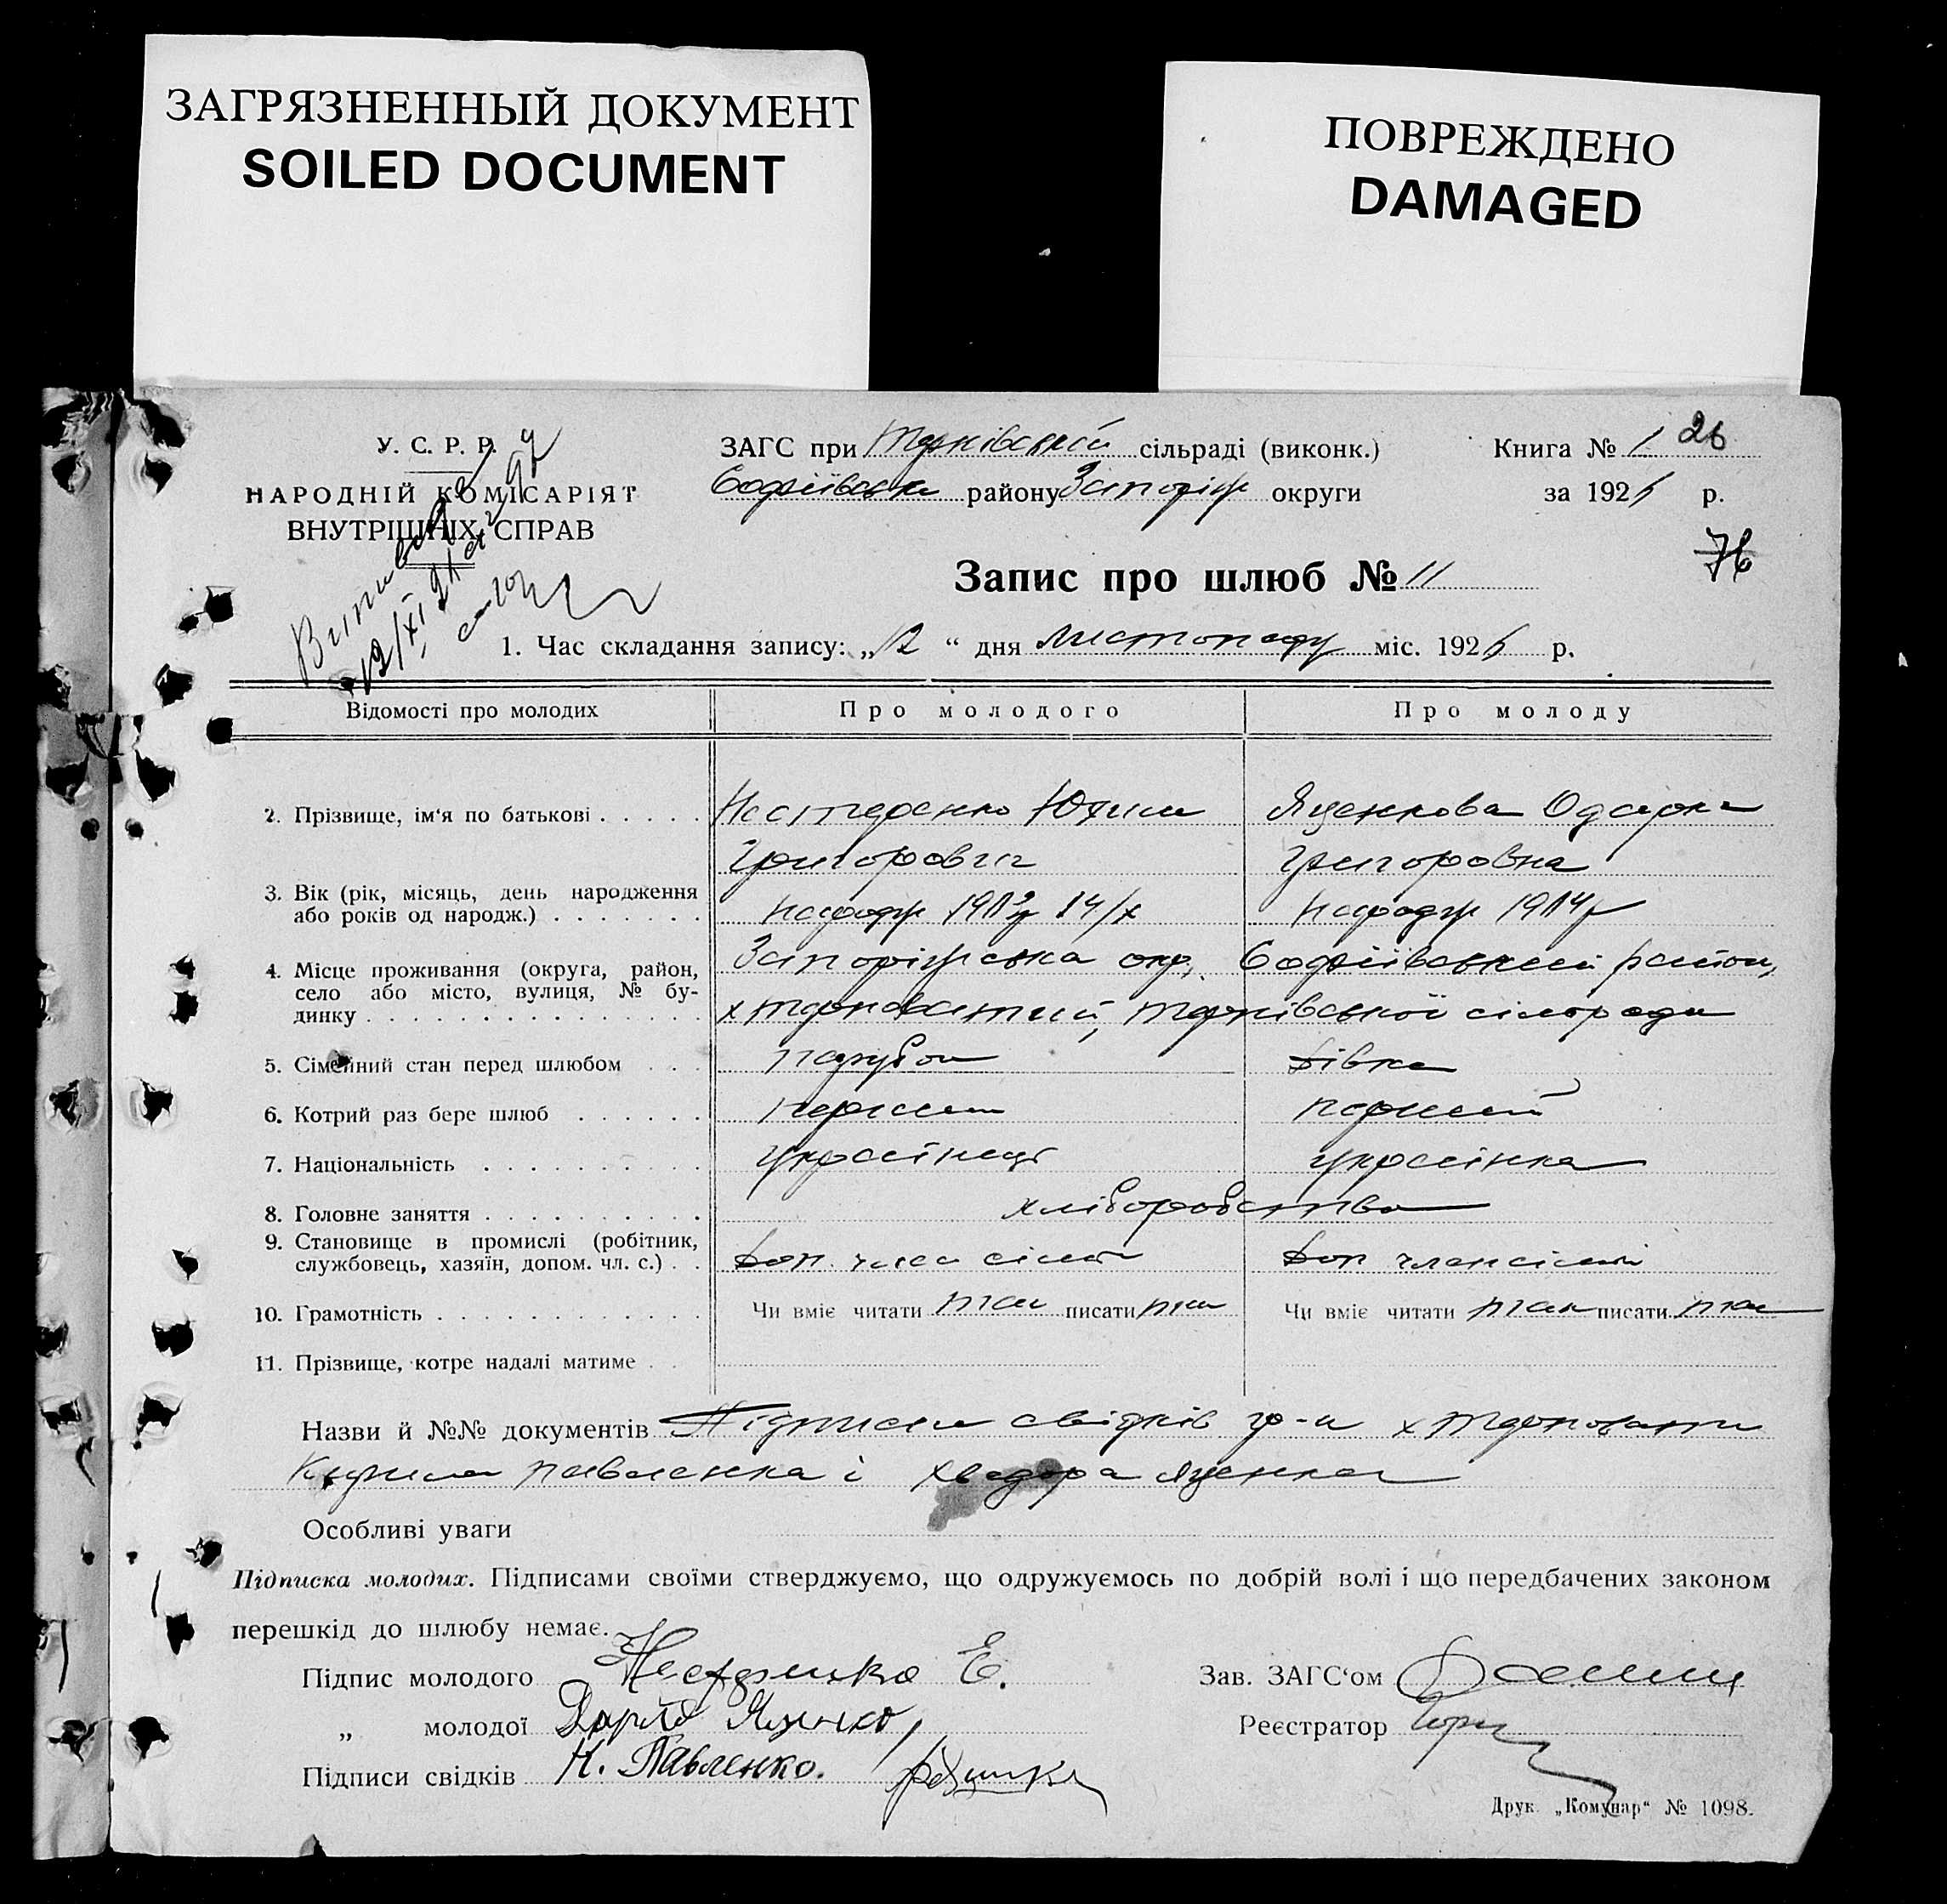 ЗАГРЯЗНЕННЫЙ ДОКУМЕНТ
SOILED DOCUMENT
ПОВРЕЖДЕНО
DAMAGED
У. С. Р. Р.
НАРОДНІЙ КОМІСАРІЯТ
ВНУТРІШНІХ СПРАВ
ЗАГС при Тернівській сільраді (виконк.)
Софіївськ району Запоріж округи
Книга № 1 26
за 192 р.
76
Запис про шлюб № 11
1. Час складання запису: „12“ дня листопаду міс. 192 р.
Відомості про молодих Про молодого Про молоду
2. Прізвище, ім‘я по батькові Нестеренко Юхим Яценкова Одарка
Григорович Григоровна
3. Вік (рік, місяць, день народження
або років од народж.) народж 14/х народж
4. Місце проживання (округа, район,
село або місто, вулиця, № бу-
динку
Запоріжська окр. Софіївський район,
х Терноватий, Тернівської сільради
5. Сімейний стан перед шлюбом парубок дівка
6. Котрий раз бере шлюб перший перший
7. Національність українець українка
8. Головне заняття хліборобство
9. Становище в промислі (робітник,
службовець, хазяїн, допом. чл. с.) доп. член сімї доп член сімї
10. Грамотність Чи вміє читати так писати так Чи вміє читати так писати так
11. Прізвище, котре надалі матиме
Назви й №№ документів Підписи свідків гр-н х Терновати
Кирила Павленка і Хведора Яценка
Особливі уваги
Підписка молодих. Підписами своїми стверджуємо, що одружуємось по добрій волі і що передбачених законом
перешкід до шлюбу немає.
Підпис молодого Нестеренко Е.
„ молодої Дарія Яценко
Підписи свідків К. Павленко.
Зав. ЗАГС‘ом
Реєстратор
Друк. „Комунар“ № 1098.